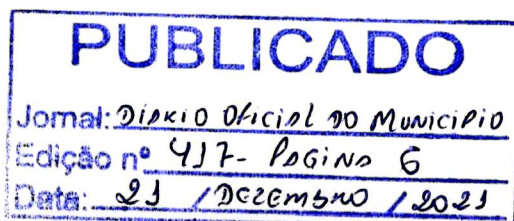 PUBLICADO
Jornal: DIARIO OFICIAL DO MUNICIPIO
Edição nº 417- PAGINA 6
Data: 21 / DEZEMBRO / 2021